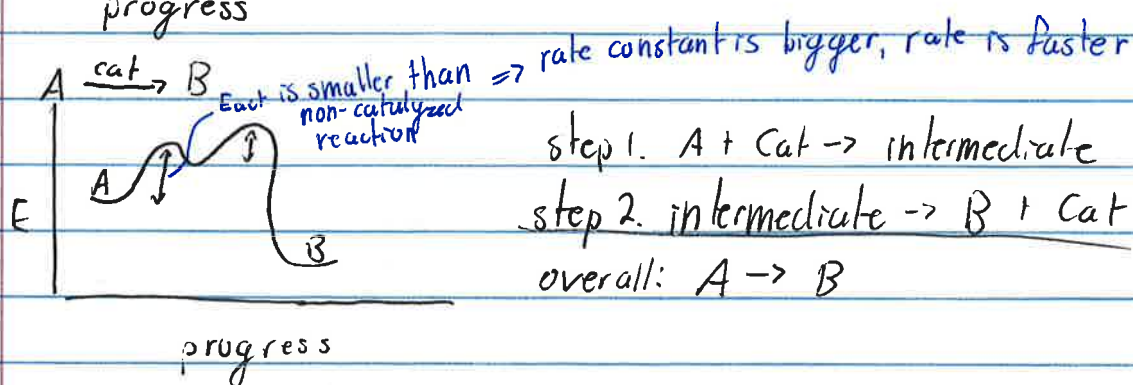 progress
A cat→ B
Eact is smaller than non-catalyzed reaction ⇒ rate constant is bigger, rate is faster
A
B
E
progress
step 1. A + Cat -> intermediate
step 2. intermediate -> B + Cat
overall: A -> B